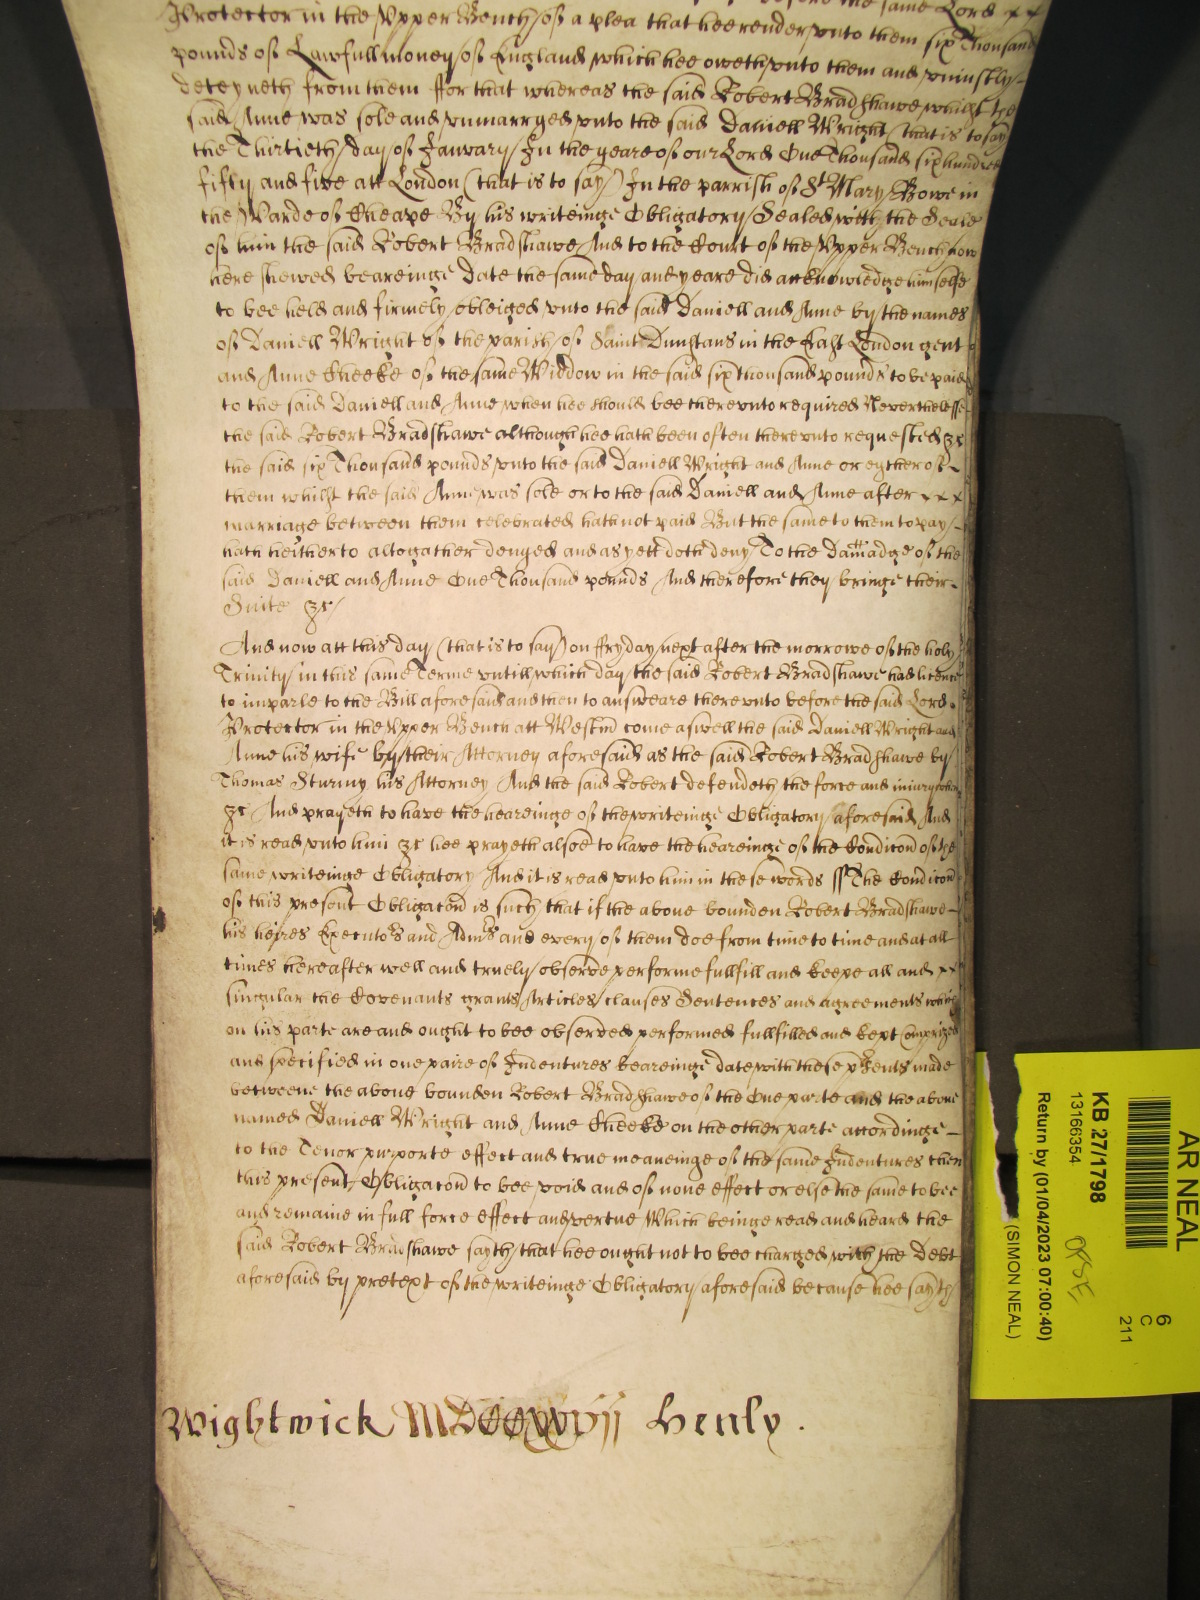 before the same Lord x x
Protector in the Vpper Bench of a plea that hee render vnto them six Thousand
pounds of Lawfull money of England which hee oweth vnto them and vniustly
deteyneth from them ffor that whereas the said Robert Bradshawe whilst the
said Anne was sole and vnmarryed vnto the said Daniell Wright (that is to say)
the Thirtieth day of January In the yeare of our Lord One Thousand six hundred
fifty and five att London (that is to say) In the parrish of St Mary Bowe in
the Warde of Cheape By his writeinge Obligatory Sealed with the Seale
of him the said Robert Bradshawe And to the Court of the Vpper Bench now
here shewed beareinge date the same day and yeare did acknowledge himselfe
to bee held and firmely obleiged vnto the said Daniell and Anne by the names
of Daniell Wright of the parish of Saint Dunstans in the East London gent
and Anne Cheeke of the same Widdow in the said six thousand pounds to be paid
to the said Daniell and Anne when hee should bee therevnto required Neverthelesse
the said Robert Bradshawe although hee hath been often therevnto requested &c
the said six Thousand pounds vnto the said Daniell Wright and Anne or eyther of
them whilst the said Anne was sole or to the said Daniell and Anne after x x x
marriage between them celebrated hath not paid But the same to them to pay
hath heitherto altogather denyed and as yett doth deny To the Damadge of the
said Daniell and Anne One Thousand pounds And therefore they bringe their
Suite &c
And now att this day (that is to say) on ffryday next after the morrowe of the holy
Trinity in this same Terme vntill which day the said Robert Bradshawe had licence
to imparle to the Bill aforesaid and then to answeare therevnto before the said Lord
Protector in the Vpper Bench att Westm come aswell the said Daniell Wright and
Anne his wife by their Attorney aforesaid as the said Robert Bradshawe by
Thomas Sturmy his Attorney And the said Robert defendeth the force and iniury when
&c And prayeth to have the heareinge of the writeinge Obligatory aforesaid And
it is read vnto him &c hee prayeth alsoe to have the heareinge of the Condicon of the
same writeinge Obligatory And it is read vnto him in these words ss The Condicon
of this present Obligacon is such that if the above bounden Robert Bradshawe
his heires Executors and Admrs and every of them doe from time to time and at all
times hereafter well and truely observe performe fullfill and keepe all and x x
singular the Covenants grants Articles clauses Sentences and agreements which
on his parte are and ought to bee observed performed fullfilled and kept comprized
and specified in one paire of Indentures beareinge date with these presents made
betweene the above bounden Robert Bradshawe of the One parte and the above
named Daniell Wright and Anne Cheeke on the other parte accordinge
to the Tenor purporte effect and true meaneinge of the same Indentures then
this present Obligacon to bee void and of none effect or else the same to bee
and remaine in full force effect and vertue Which beinge read and heard the
said Robert Bradshawe sayth that hee ought not to bee charged with the Debt
aforesaid by pretext of the writeinge Obligatory aforesaid because hee sayth
Wightwick Henly.
AR NEAL
KB 27/1798
13166354
Return by (01/04/2023 07:00:40)
(SIMON NEAL)
6
C
211